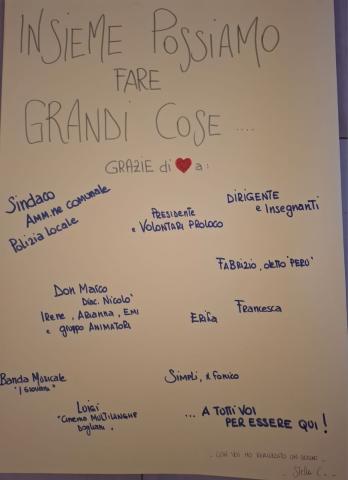 INSIEME POSSIAMO
FARE
GRANDI COSE ....
GRAZIE di ❤ a:
Sindaco
AMM.NE COMUNALE
Polizia locale
PRESIDENTE
e VOLONTARI PROLOCO
DIRIGENTE
e Insegnanti
FABRIZIO, detto "PERÙ"
DON MARCO
Diac. Nicolò
IRENE, ARIANNA, EMI
e gruppo ANIMATORI
ERIKA
Francesca
BANDA MUSICALE
"I Giovani"
SIMPLI, il fonico
LUIGI
"CINEMA MULTILANGHE
Dogliani".
... A TUTTI VOI
PER ESSERE QUI!
CON VOI HO REALIZZATO UN SOGNO
Stella C.